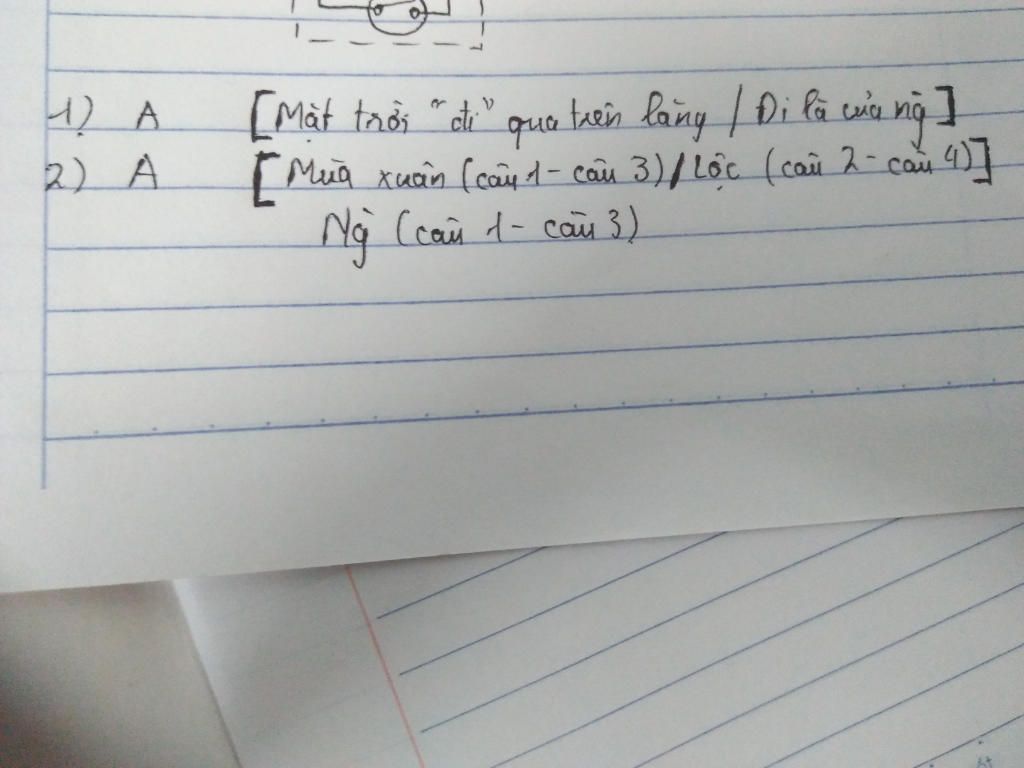 1) A [Mặt trời "đi" qua trên lăng / Đi là của ng̀]
2) A [Mùa xuân (câu 1 - câu 3) / Lộc (câu 2 - câu 4)]
Ng̀ (câu 1 - câu 3)